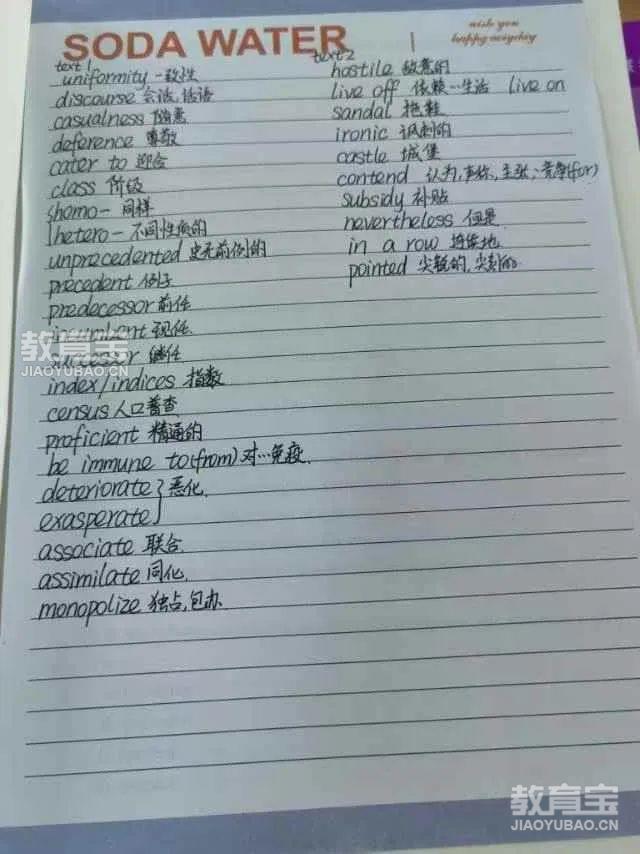 SODA WATER
wish you
happy everyday
text 1
uniformity 一致性
discourse 会话,话语
casualness 随意
deference 尊敬
cater to 迎合
class 阶级
homo- 同样
hetero- 不同性质的
unprecedented 史无前例的
precedent 例子
predecessor 前任
incumbent 现任
successor 继任
index/indices 指数
census 人口普查
proficient 精通的
be immune to(from) 对…免疫
deteriorate } 恶化
exasperate
associate 联合
assimilate 同化
monopolize 独占,包办
text 2
hostile 敌意的
live off 依赖…生活 live on
sandal 拖鞋
ironic 讽刺的
castle 城堡
contend 认为,声称,主张;竞争(for)
subsidy 补贴
nevertheless 但是
in a row 连续地
pointed 尖锐的,尖刻的
教育宝
JIAOYUBAO.CN
教育宝
JIAOYUBAO.CN